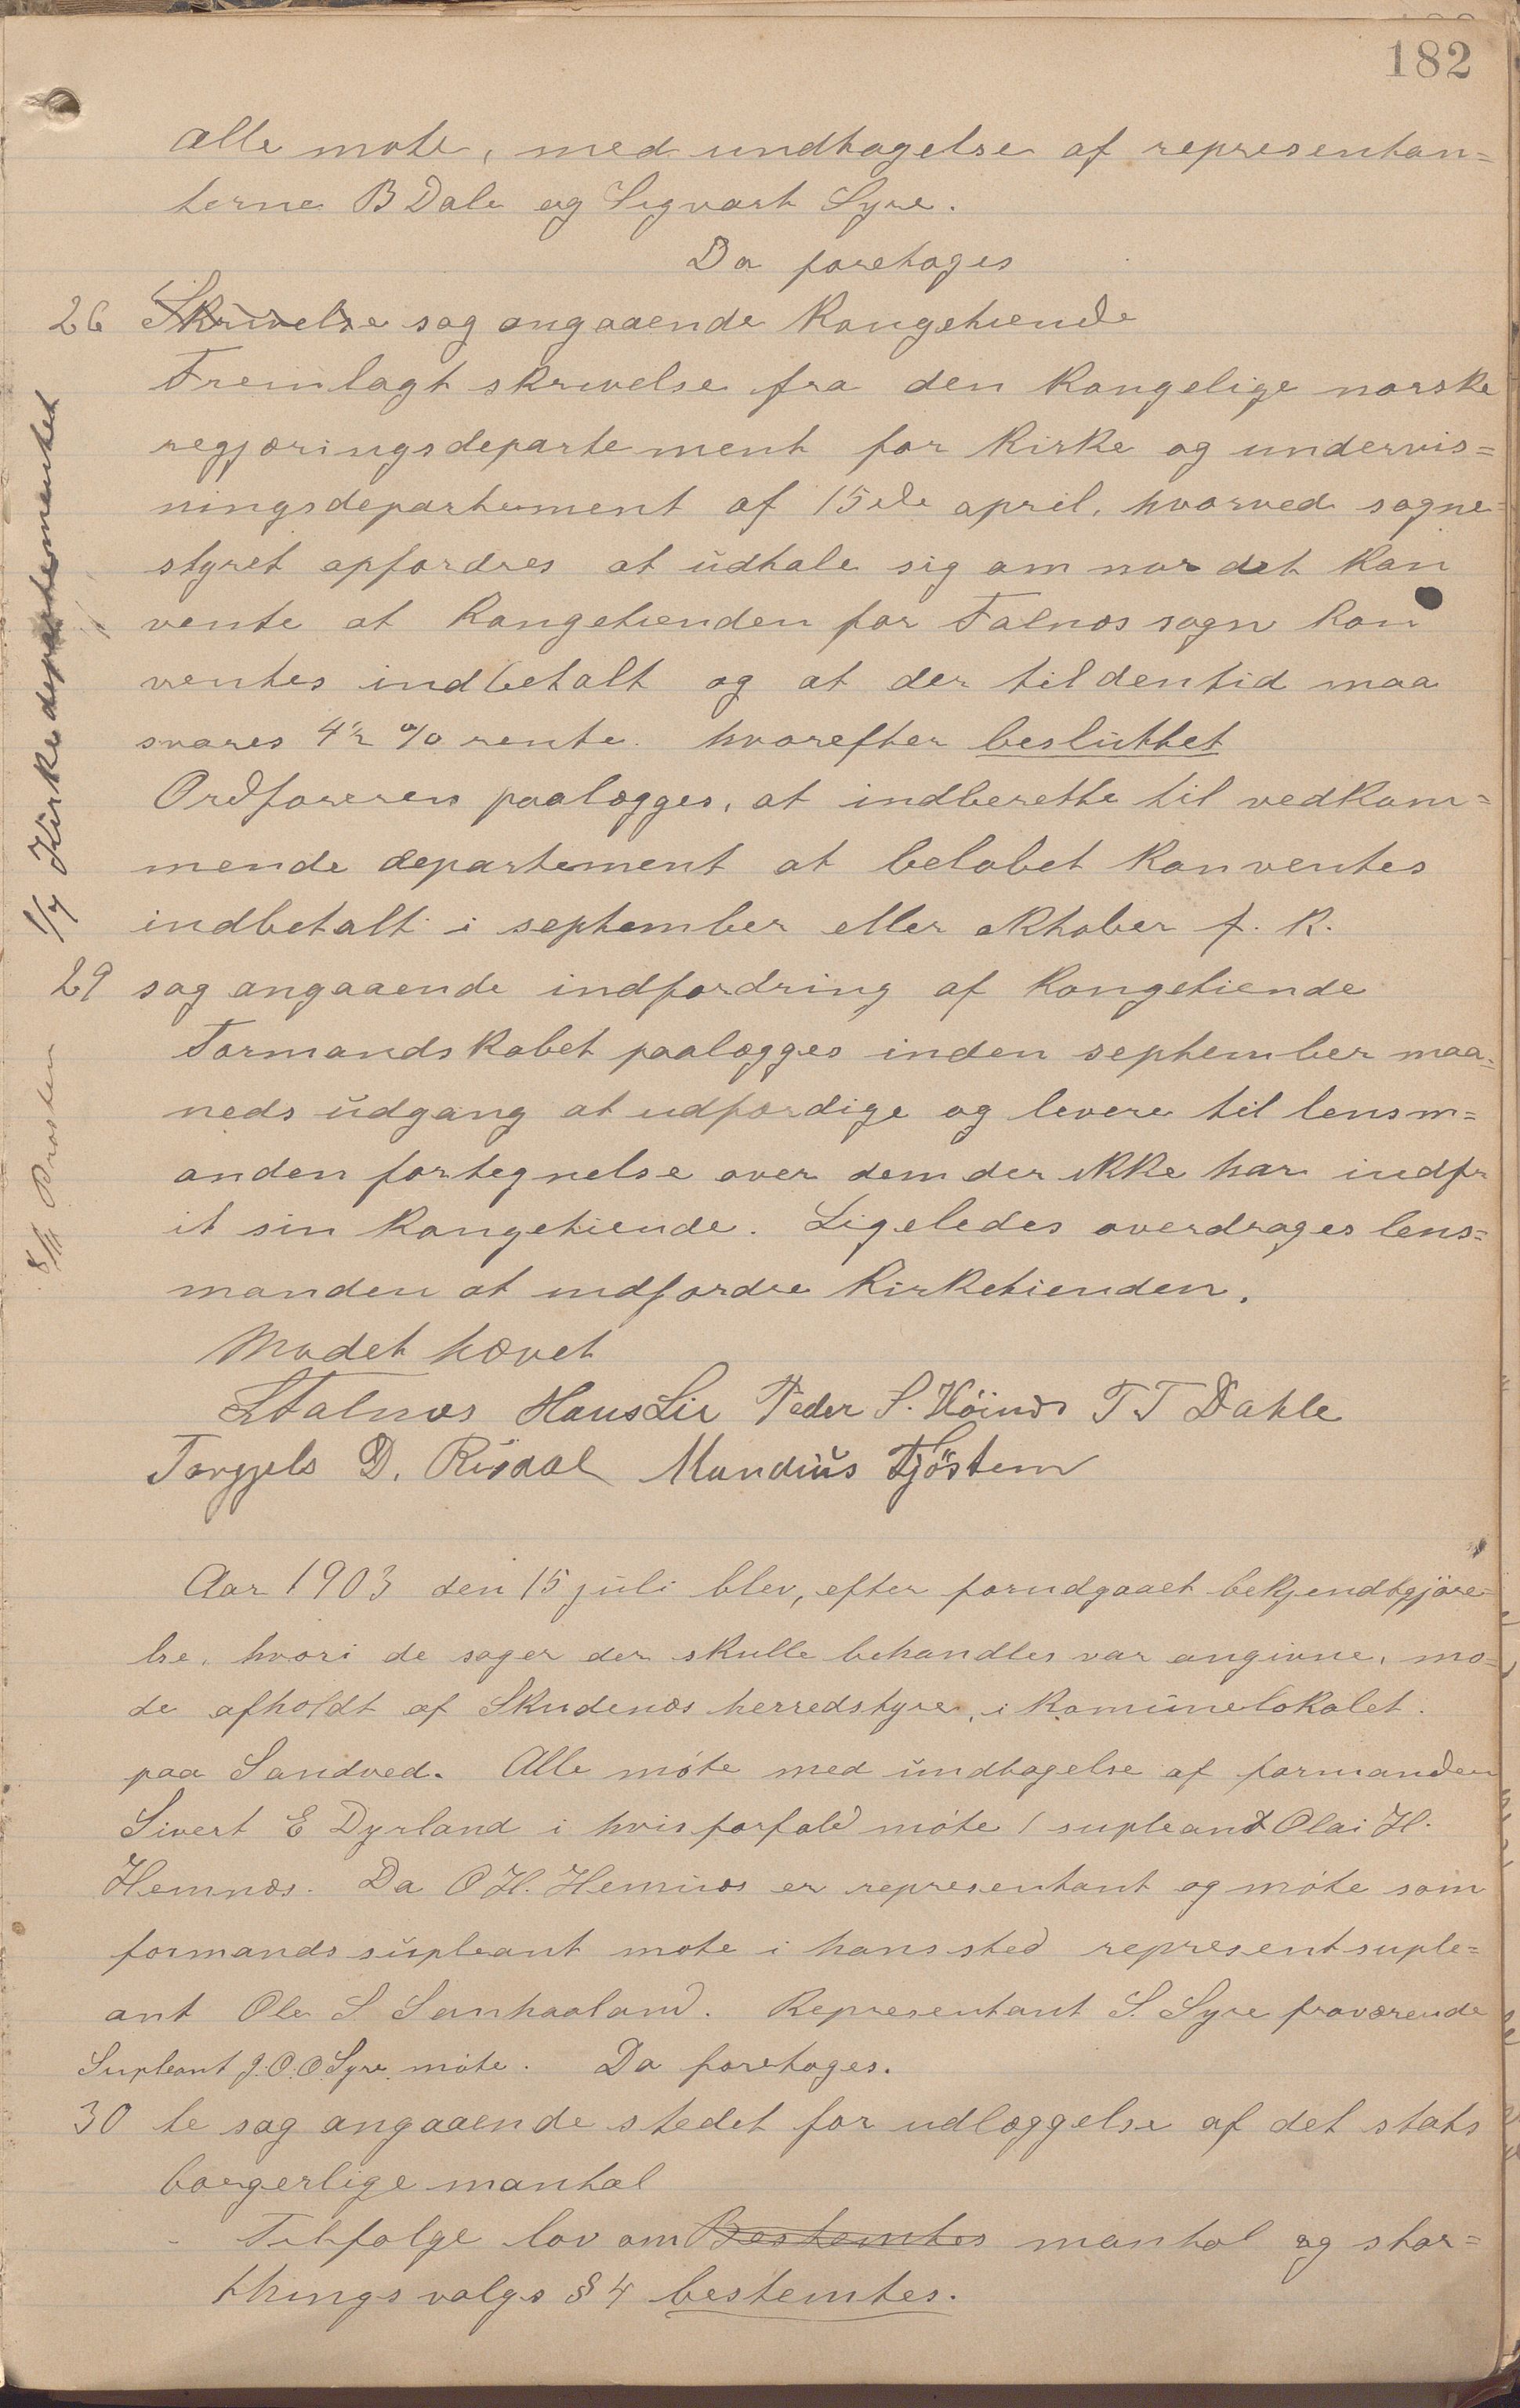 182
alle møte, med undtagelse af representan=
terne B Dale og Sigvart Syre.
Da foretages
26 Skrivelse sag angaaende Kongetiende
Fremlagt skrivelse fra den Kongelige norske
regjæringsdepartement for Kirke og undervis=
ningsdepartement af 15de april, hvorved sogne=
styret opfordres at udtale sig om nar det kan
vente at Kongetienden for Falnæs sogn kan
ventes indbetalt og at der til den tid maa
svares 4½ % rente. hvorefter besluttet
Ordføreren paalægges, at indberette til vedkom=
mende departement at beløbet kan ventes
indbetalt i september eller oktober f. k.
1/7 Kirkedepartementet
29 sag angaaende indfordring af Kongetiende
Formandskabet paalægges inden september maa=
neds udgang at udfærdige og levere til lensm=
anden fortegnelse over dem der ikke har indfr
it sin Kongetiende. Ligeledes overdrages lens=
manden at indfordre Kirketienden.
8/11 Prosten
Mødet hævet
Falnæs Hans Lie Peder S. Höinæs T T Dahle
Torgjels D. Risdal Mandius Tjöstem
Aar 1903 den 15 juli blev, efter forudgaaet bekjendtgjøre=
lse, hvori de sager der skulle behandles var angivne, mø=
de afholdt af Skudenæs herredstyre, i komunelokalet.
paa Sandved. Alle møte med undtagelse af formanden
Sivert E Dyrland i hvis forfald møte 1 supleant Olai H.
Hemnæs. Da O H. Hemnæs er representant og møte som
formandssupleant møte i hans sted representsuple=
ant Ole S Samhaaland. Representant S. Syre fraværende
Supleant J. O. O. Syre møte. Da foretages.
30 te sag angaaende stedet for udlæggelse af det stats
borgerlige mantal
Tilfølge lov om Bestemtes mantal og stor=
thingsvalgs § 4 bestemtes.